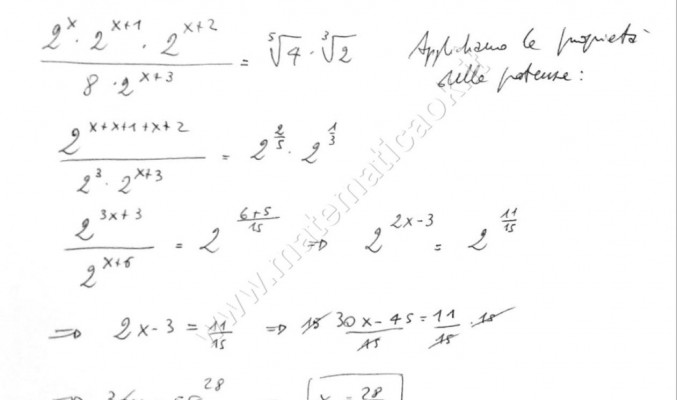 2^x · 2^{x+1} · 2^{x+2} / 8 · 2^{x+3} = ⁵√4 · ³√2 Applichiamo le proprietà
delle potenze:
2^{x+x+1+x+2} / 2^3 · 2^{x+3} = 2^{2/5} · 2^{1/3}
2^{3x+3} / 2^{x+6} = 2^{(6+5)/15} ⇒ 2^{2x-3} = 2^{11/15}
⇒ 2x-3 = 11/15 ⇒ 15 (30x-45)/15 = 11/15 · 15
28 x = 28
www.matematicaok.it